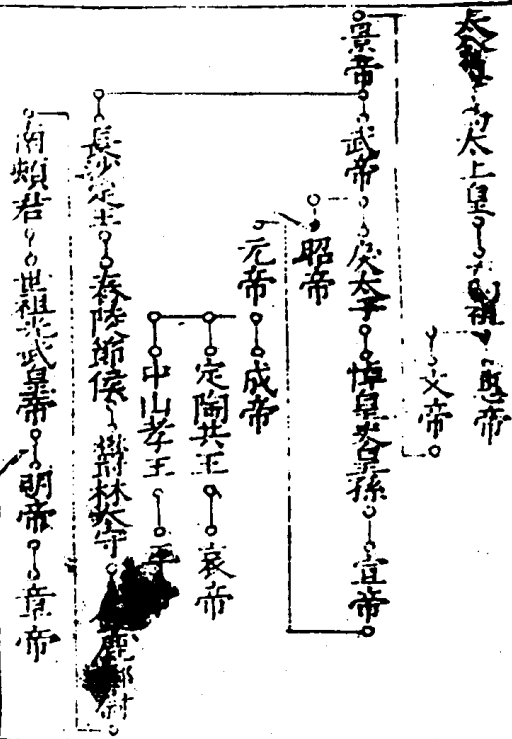 太上皇 惠帝
文帝
景帝 武帝 戾太子 悼皇考皇孫 宣帝
昭帝
元帝 成帝
定陶共王 哀帝
中山孝王 平
長沙定王 舂陵節侯 鬱林太守 鹿都尉
南頓君 世祖光武皇帝 明帝 章帝